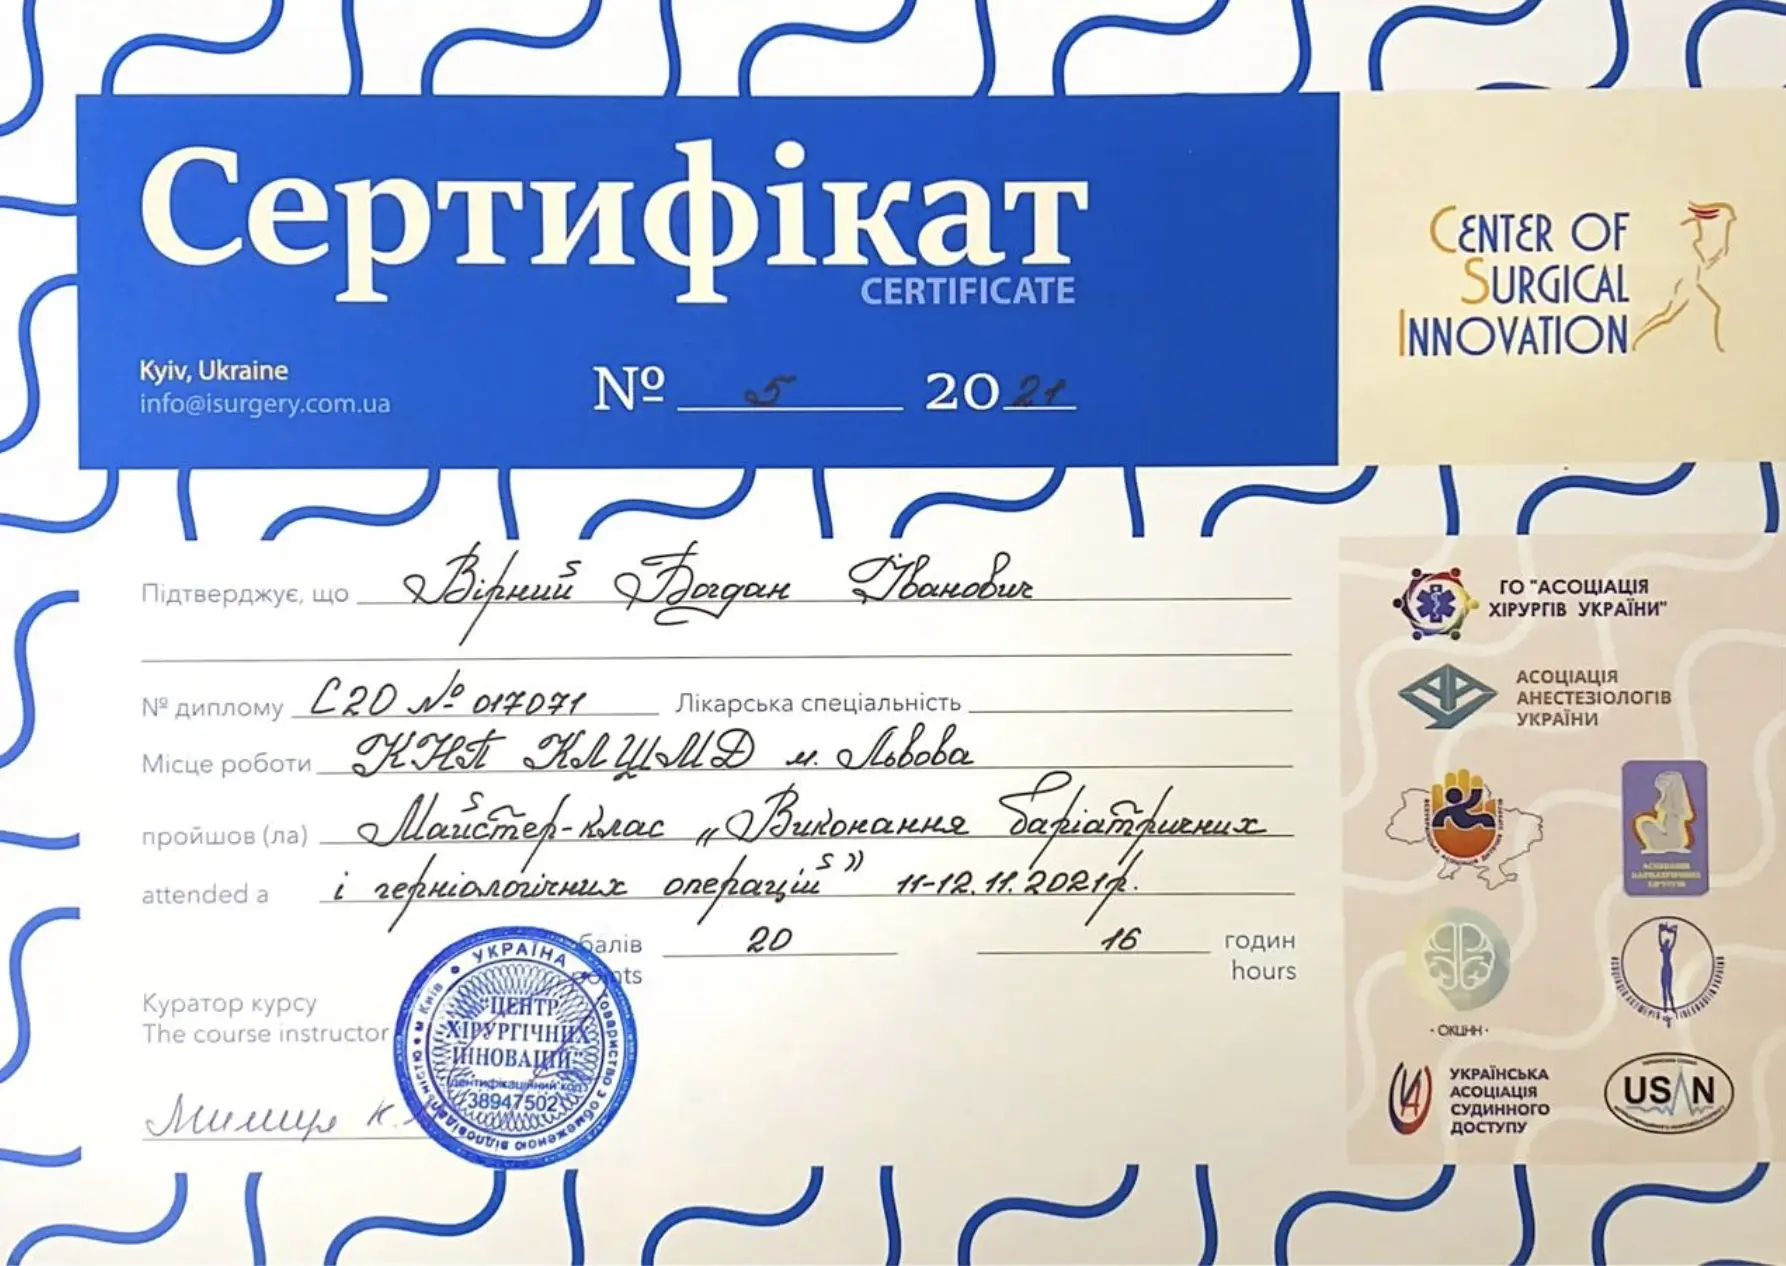 Сертифікат
CERTIFICATE
CENTER OF
SURGICAL
INNOVATION
Kyiv, Ukraine
info@isurgery.com.ua
№ 5 2021
Підтверджує, що Вірний Богдан Іванович
№ диплому С20 № 017071 Лікарська спеціальність
Місце роботи КНП КЛШМД м. Львова
пройшов (ла) Майстер-клас „Виконання баріатричних
attended a і герніологічних операцій" 11-12.11.2021р.
балів 20 16 годин
points hours
Куратор курсу
The course instructor
УКРАЇНА
м Київ
Товариство з обмеженою відповідальністю
"ЦЕНТР
ХІРУРГІЧНИХ
ІННОВАЦІЙ"
Ідентифікаційний код
38947502
ГО "АСОЦІАЦІЯ
ХІРУРГІВ УКРАЇНИ"
АСОЦІАЦІЯ
АНЕСТЕЗІОЛОГІВ
УКРАЇНИ
· ОКЦНН ·
УКРАЇНСЬКА
АСОЦІАЦІЯ
СУДИННОГО
ДОСТУПУ
USAN